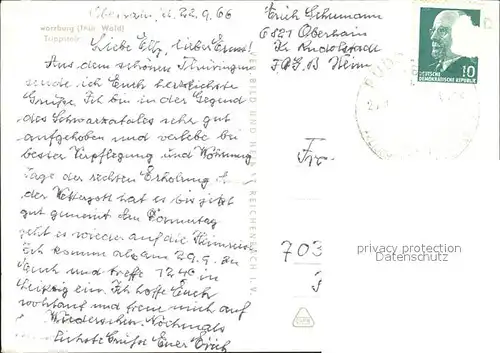 Oberhain, d. 22.9.66
warzburg (Thür. Wald)
Trippstein
Liebe Elly, lieber Ernst!
Aus dem schönen Thüringen
sende ich Euch herzlichste
Grüße. Ich bin in der Gegend
des Schwarzatales sehr gut
aufgehoben und verlebe bei
bester Verpflegung und Wohnung
Tage der rechten Erholung.
der Wettergott hat es bis jetzt
gut gemeint. Am Sonntag
geht es wieder auf die Heimreise
Ich komme also am 29.9. zu
Euch und treffe 12.40 in
Leipzig ein. Ich hoffe Euch
wohlauf und freue mich auf
Wiedersehen. Nochmals
herzlichste Grüße Euer Erich
VEB BILD UND HEIMAT REICHENBACH I. V.
Erich Schumann
6821 Oberhain
Kr. Rudolstadt
Heim
DEUTSCHE
DEMOKRATISCHE REPUBLIK
10
Fr
703
privacy protection
Datenschutz